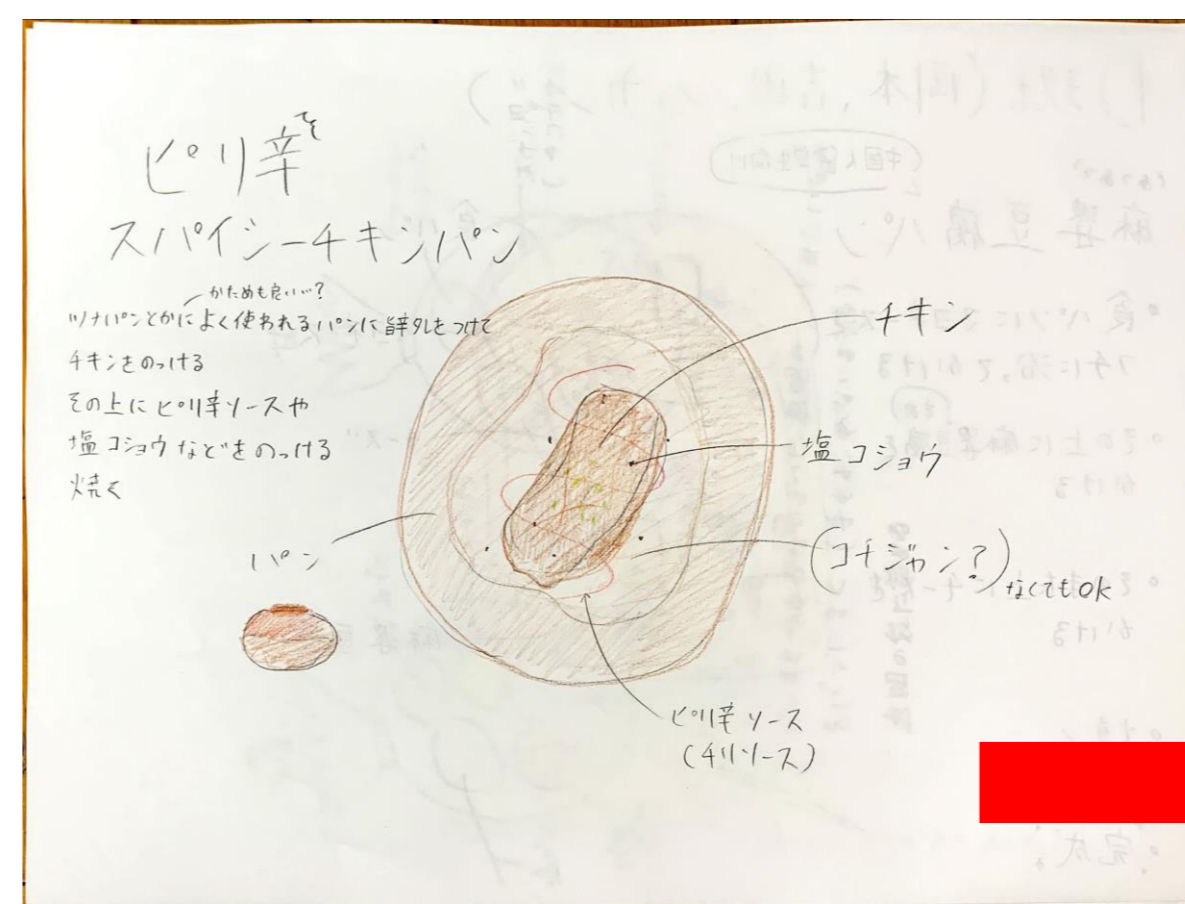 ピリ辛
スパイシーチキンパン
かためも良い…?
ツナパンとかによく使われるパンに旨辛タレをつけて
チキンをのっける
その上にピリ辛ソースや
塩コショウなどをのっける
焼く
チキン
塩コショウ
(コチジャン?)
なくてもOK
パン
ピリ辛ソース
(チリソース)